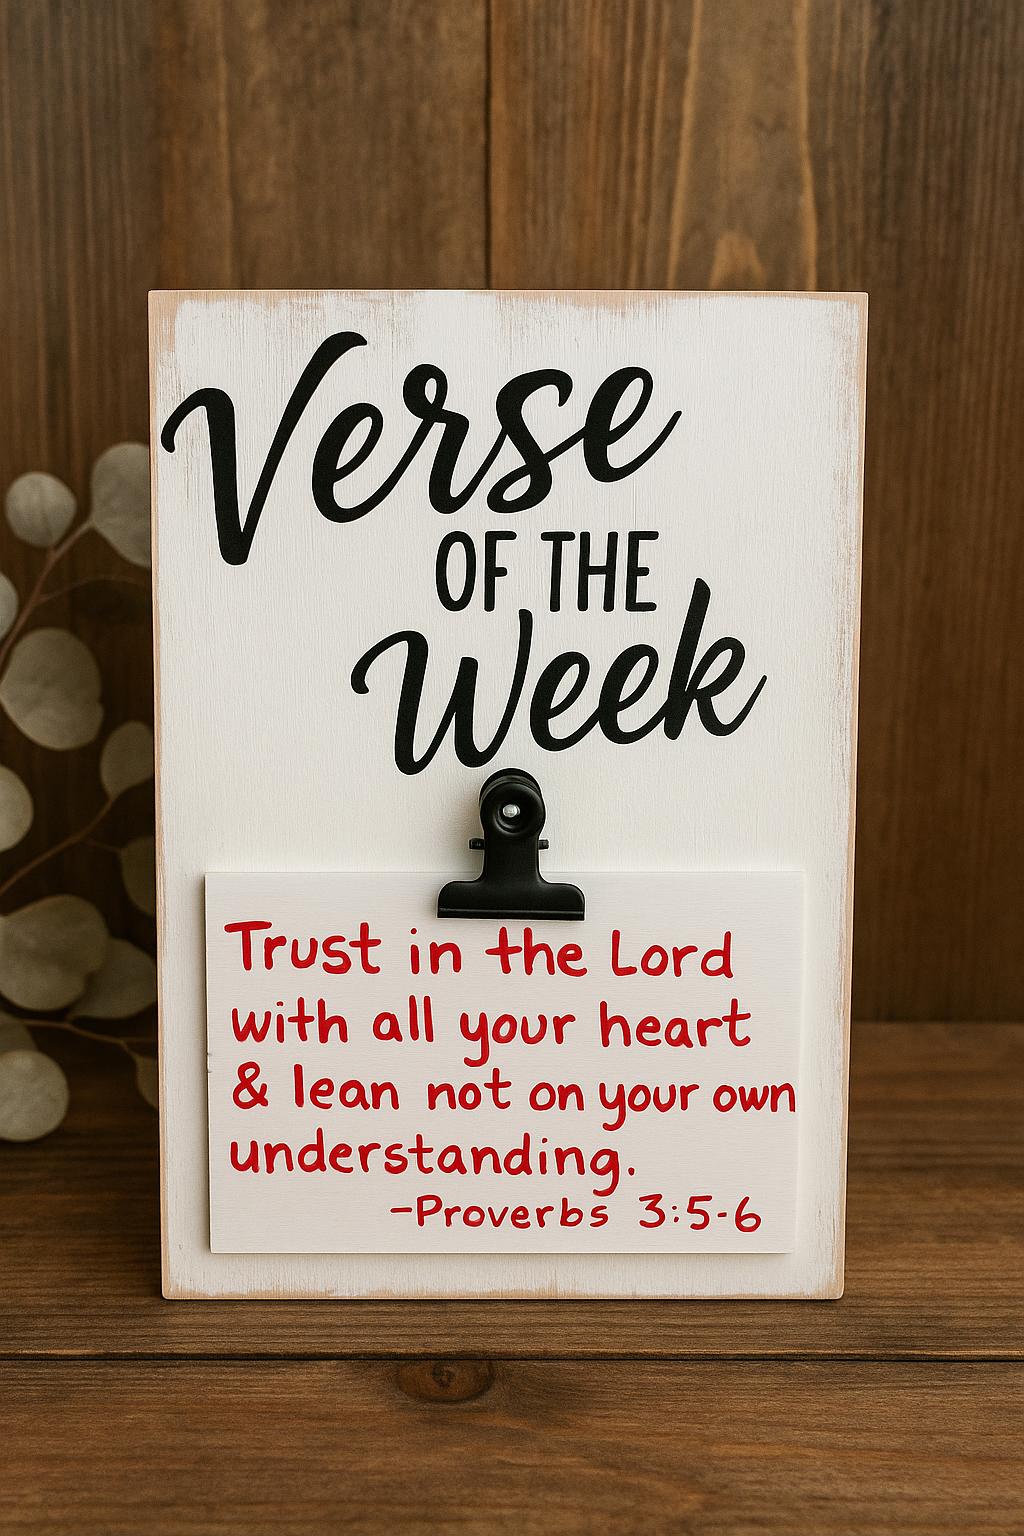 Verse
OF THE
Week
Trust in the Lord
with all your heart
& lean not on your own
understanding.
-Proverbs 3:5-6